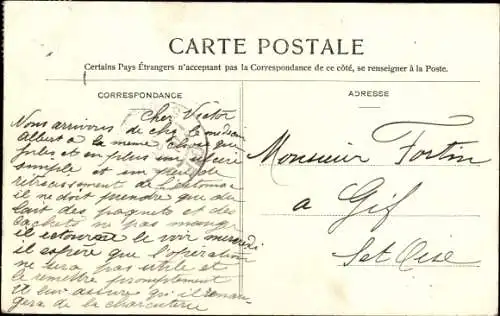 CARTE POSTALE
Certains Pays Étrangers n'acceptant pas la Correspondance de ce côté, se renseigner à la Poste.
CORRESPONDANCE
ADRESSE
Cher Victor
Nous arrivons de chez le médecin
Albert a la meme chose que
et en plus un ulcère
simple et en plus de
retrecissement de l'estomac
il ne doit prendre que du
lait des paquets et des
cachets ne pas manger
il retourne le voir mercredi
il espère que l'opération
ne sera pas utile et
le remettre promptement
Il lui assure qu'il
gera de la charcuterie
Monsieur Fortin
a Gif
Set Oise